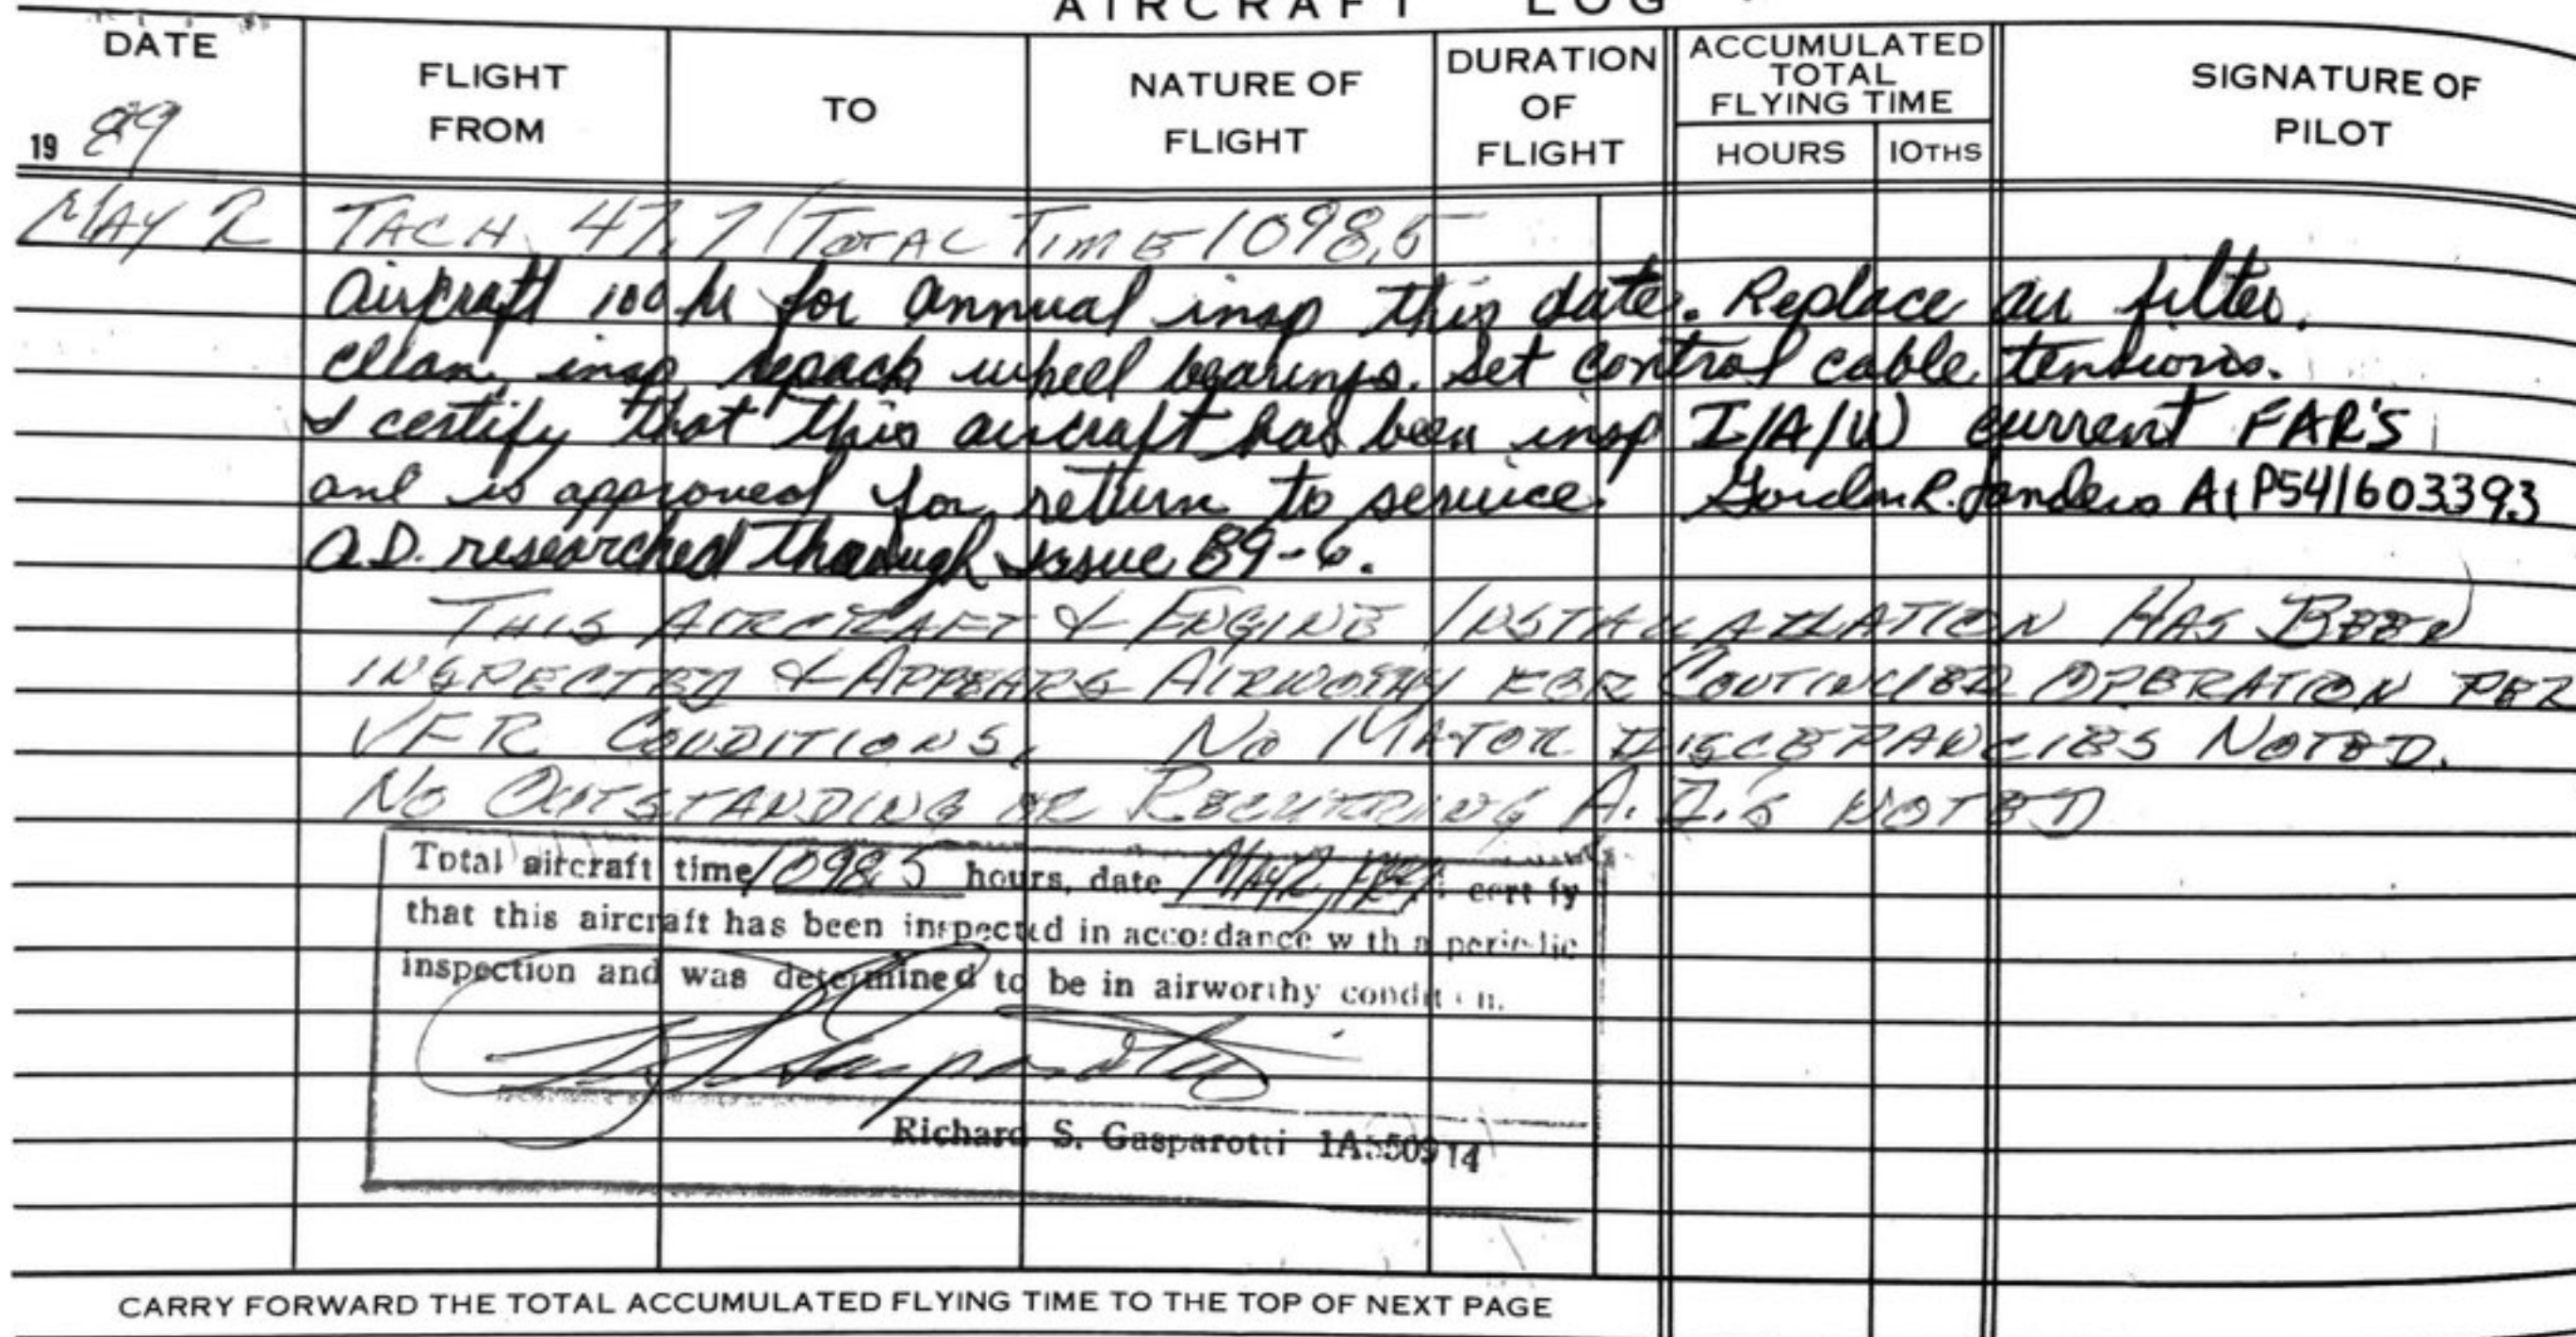 AIRCRAFT LOG
DATE
19 89
FLIGHT FROM
TO
NATURE OF FLIGHT
DURATION OF FLIGHT
ACCUMULATED TOTAL FLYING TIME
HOURS
10THS
SIGNATURE OF PILOT
MAY 2 TACH 47.7 / TOTAL TIME 1098.5
Aircraft 100 hr for annual insp this date. Replace air filter.
clean, insp, repack wheel bearings. Set control cable tensions.
I certify that this aircraft has been insp I/A/W current FAR'S
and is approved for return to service. Gordon R. Sanders A&P 541603393
A.D. researched through issue 89-6.
THIS AIRCRAFT & ENGINE HAS BEEN
INSPECTED & APPEARS AIRWORTHY FOR CONTINUED OPERATION PER
VFR CONDITIONS. NO MAJOR DISCEPANCIES NOTED.
NO OUTSTANDING OR RECURRING A.D.'S NOTED
Total aircraft time 1098.5 hours, date MAY 2, 1989 I certify
that this aircraft has been inspected in accordance with a periodic
inspection and was determined to be in airworthy condition.
Richard S. Gasparotti
CARRY FORWARD THE TOTAL ACCUMULATED FLYING TIME TO THE TOP OF NEXT PAGE